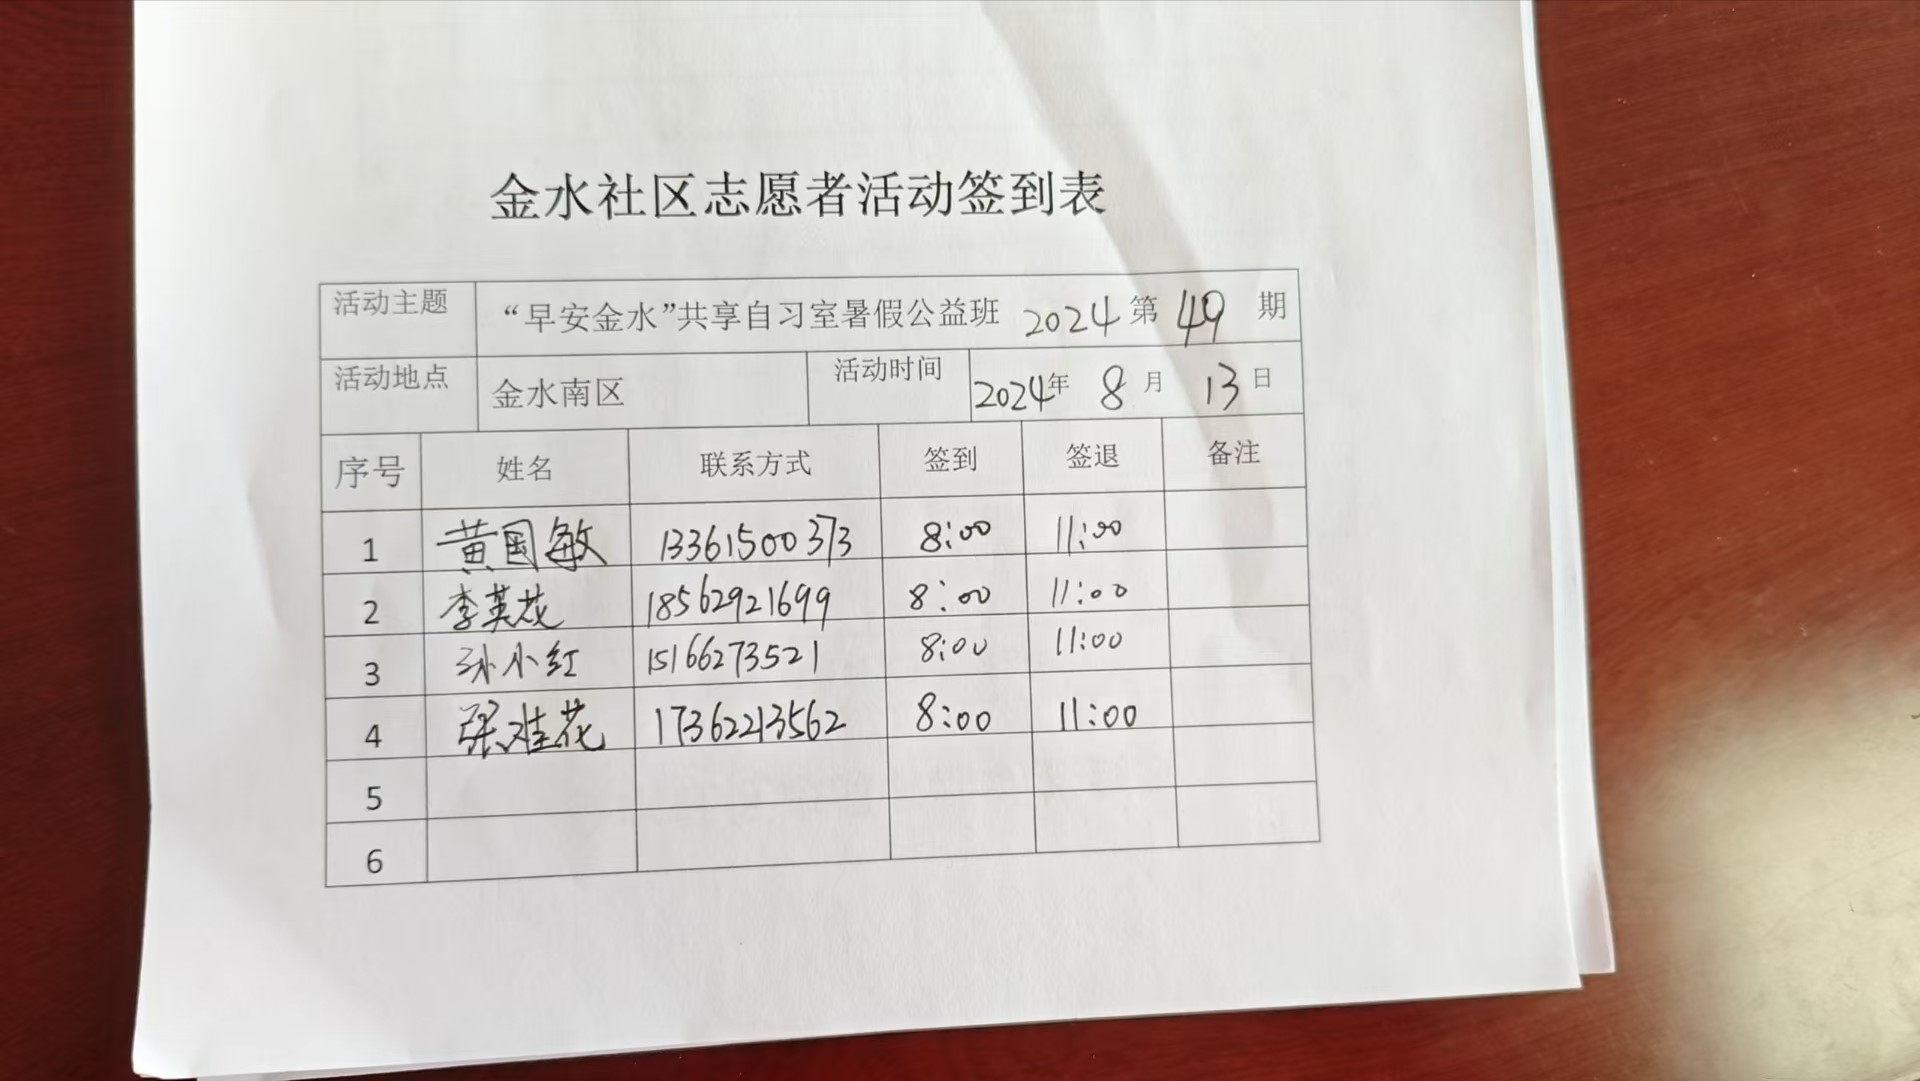 金水社区志愿者活动签到表
活动主题 “早安金水”共享自习室暑假公益班 2024 第 49 期
活动地点 金水南区 活动时间 2024年 8月 13日
序号 姓名 联系方式 签到 签退 备注
1 黄国敏 13361500373 8:00 11:00
2 李英花 18562921699 8:00 11:00
3 孙小红 15166273521 8:00 11:00
4 张桂花 17362213562 8:00 11:00
5
6